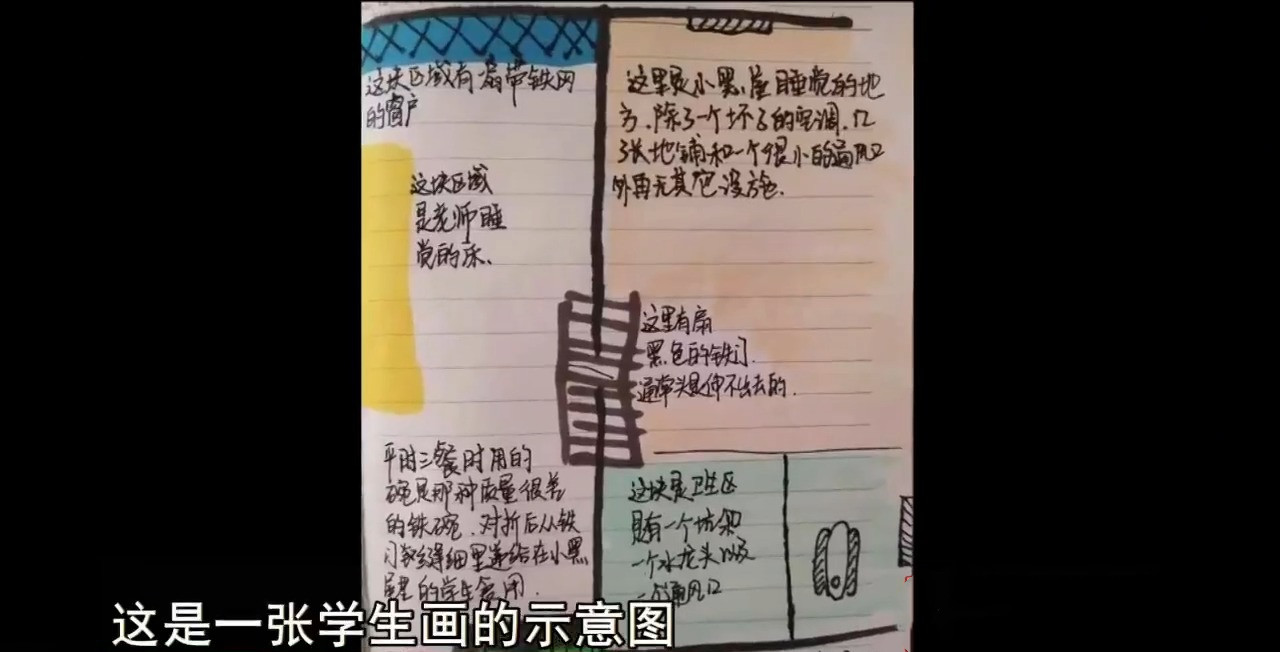 这块区域有扇带铁网
的窗户
这块区域
是老师睡
觉的床、
平时三餐时用的
碗是那种质量很差
的铁碗、对折后从铁
门缝细里递给在小黑
屋里的学生食用.
这里是小黑屋睡觉的地
方、除了一个坏了的空调、几
张地铺和一个很小的通风口
外再无其它设施.
这里有扇
黑色的铁门.
通常头是伸不出去的.
这块是卫生区
只有一个坑和
一个水龙头以及
一个通风口
这是一张学生画的示意图